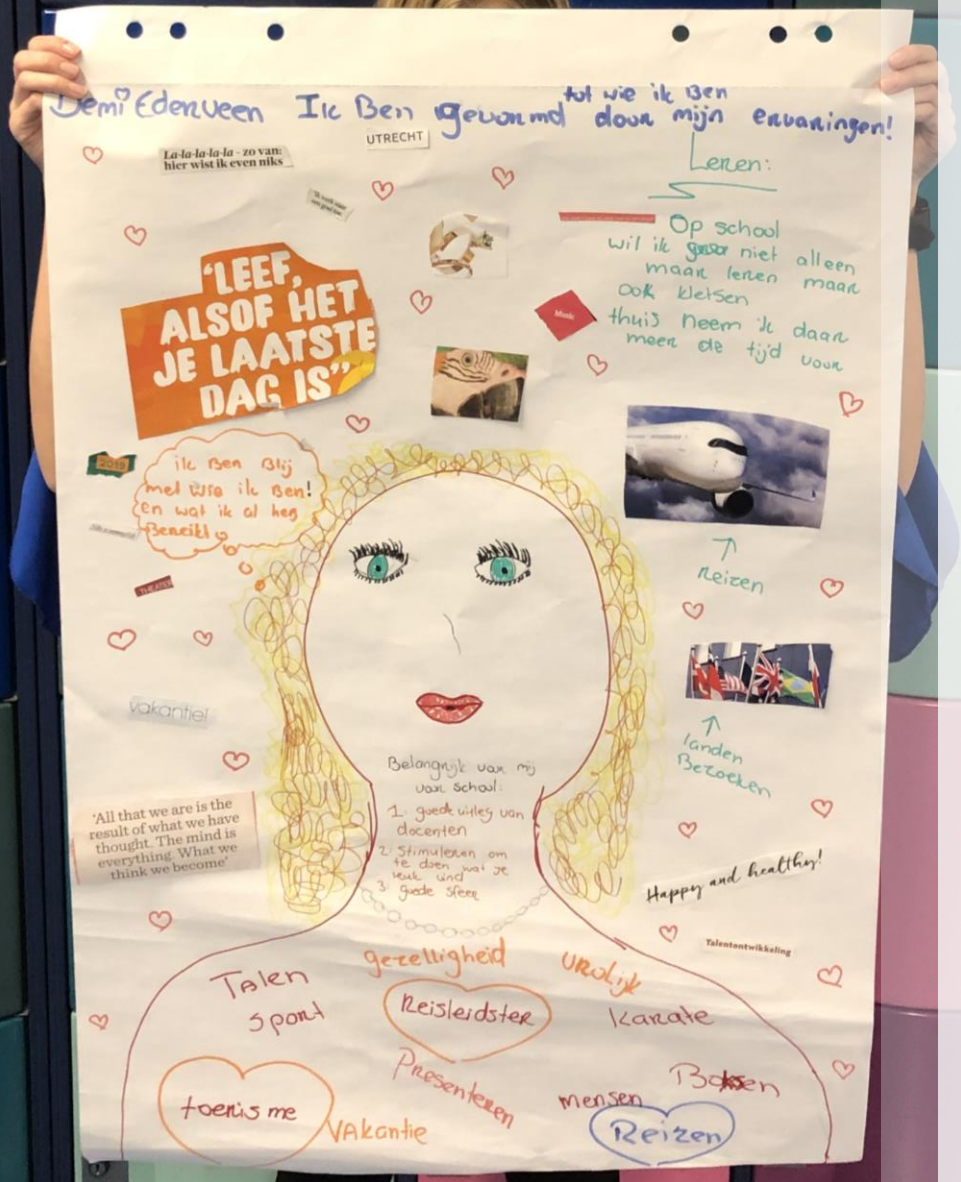 Demi Edenveen Ik Ben gevormd door mijn ervaringen!
tot wie ik Ben
UTRECHT
La-la-la-la-la - zo van:
hier wist ik even niks
Leren:
Op school
wil ik niet alleen
maar leren maar
ook kletsen
thuis neem ik daar
meer de tijd voor
'LEEF,
ALSOF HET
JE LAATSTE
DAG IS"
Music
2019
ik Ben Blij
met wie ik Ben!
En wat ik al heb
Bereikt
THEATER
Reizen
vakantie!
landen
Bezoeken
Belangrijk van mij
van school:
1. goede uitleg van
docenten
2. Stimuleren om
te doen wat je
leuk vind
3. goede sfeer
'All that we are is the
result of what we have
thought. The mind is
everything. What we
think we become'
Happy and healthy!
Talentontwikkeling
gezelligheid
vrolijk
Talen
sport
Reisleidster
Karate
Presenteren
Boksen
mensen
toerisme
Vakantie
Reizen